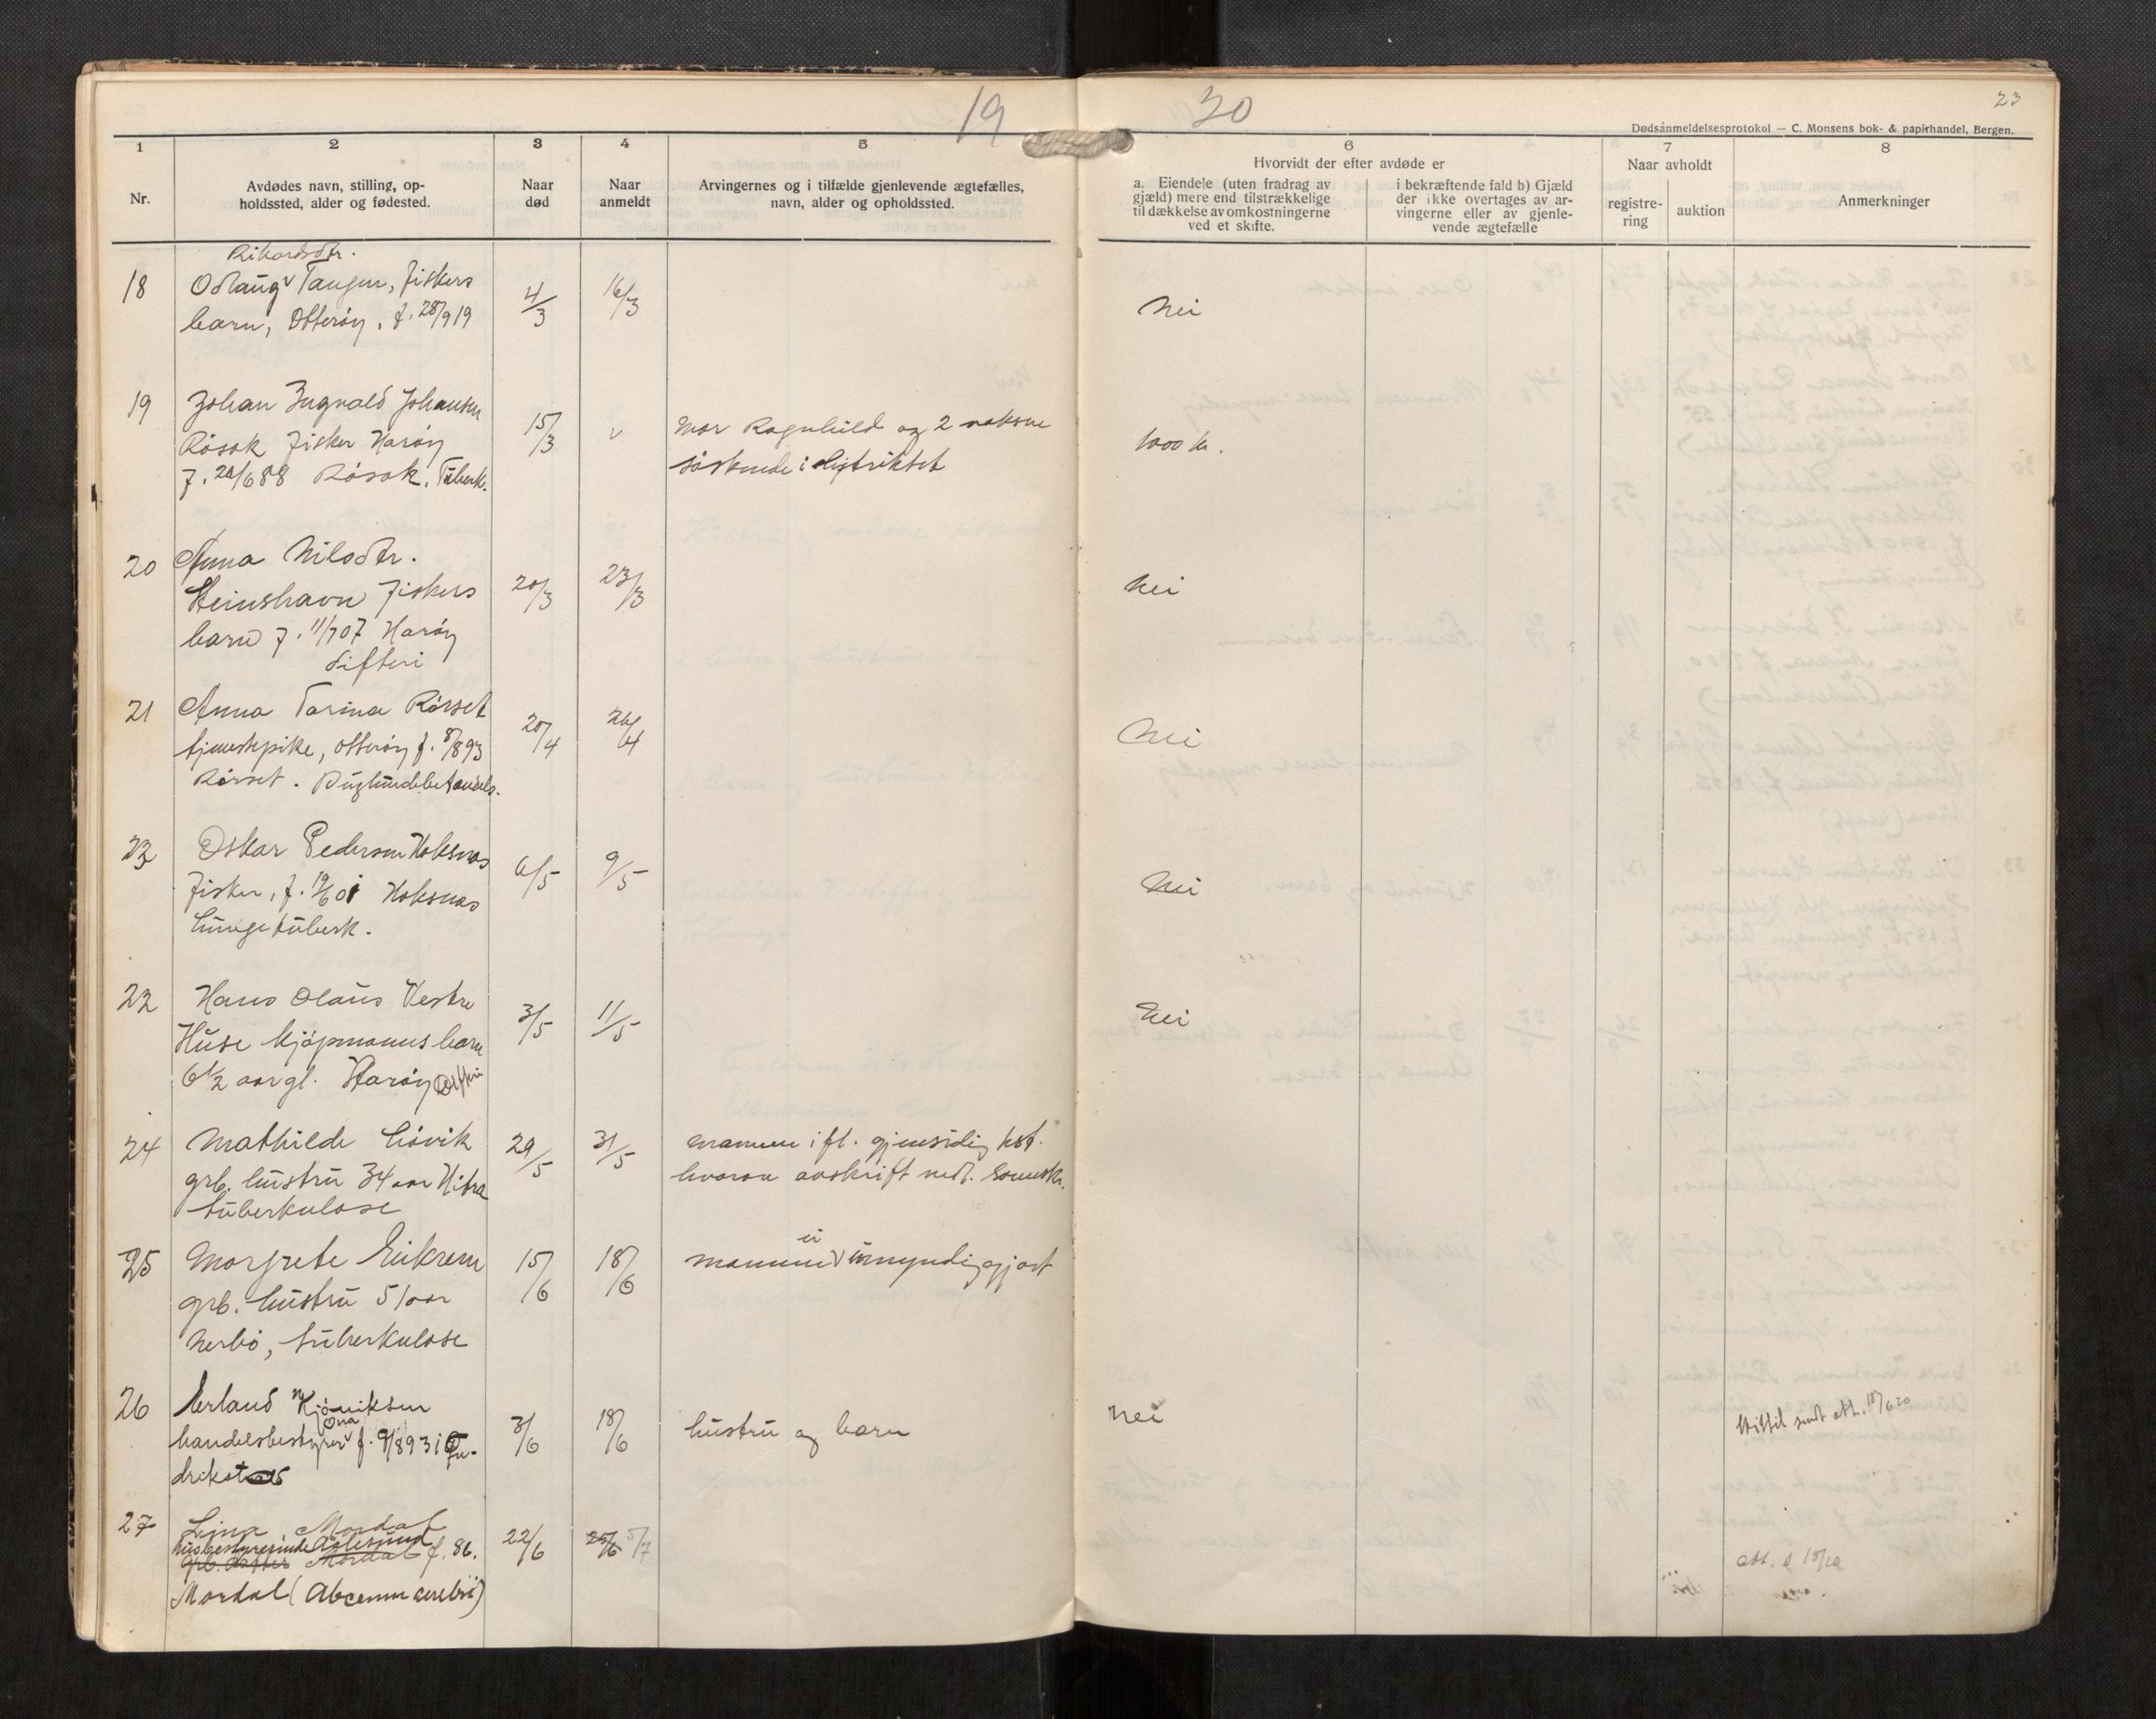 19
20
23
Dødsanmeldelsesprotokol — C. Monsens bok- & papirhandel, Bergen.
1
2
3
4
5
6
7
8
Nr.
Avdødes navn, stilling, op-
holdssted, alder og fødested.
Naar
død
Naar
anmeldt
Arvingernes og i tilfælde gjenlevende ægtefælles,
navn, alder og opholdssted.
Hvorvidt der efter avdøde er
a. Eiendele (uten fradrag av
gjæld) mere end tilstrækkelige
til dækkelse av omkostningerne
ved et skifte.
i bekræftende fald b) Gjæld
der ikke overtages av ar-
vingerne eller av gjenle-
vende ægtefælle
Naar avholdt
registre-
ring
auktion
Anmerkninger
Rikardsdtr.
18 Odlaug Tangen, fiskers 4/3 16/3 Nei
barn, Otterøy, f. 28/9 19
19 Johan Ingvald Johansen 15/3 Mor Ragnhild og 2 voksne 1000 kr.
Røsok Fisker Harøy søskende i distriktet
f. 24/6 88 Røsok. Tuberk.
20 Anna Nilsdtr. 20/3 23/3 Nei
Steinshavn fiskers
barn f. 11/7 07 Harøy
Difteri
21 Anna Tarina Rørset 20/4 26/4 Nei
tjenestepike, Otterøy f. 8/893
Rørset.
23 Oskar Pedersen Hoksnes 6/5 9/5 Nei
Fisker, f. 19/6 01 Hoksnes
lungetuberk.
22 Hans Olaus Vestre 3/5 11/5 Nei
Huse kjøpmanns barn
6 1/2 aar gl. Harøy Difteri
24 Mathilde Løvik 29/5 31/5 mannen ifl. gjensidig test.
grb. hustru 34 aar Hitra hvorav avskrift vedl.
tuberkulose
25 Margrete Eikrem 15/6 18/6 mannen ei umyndiggjort
grb. hustru 51 aar
Nerbø, tuberkulose
26 Erland Kjønniksen 3/6 18/6 hustru og barn Nei
handelsbestyrer Ona f. 9/893 i Fre-
drikstad
sendt att. 18/6 20
27 Lina Mordal 22/6 25/6 5/7
husbestyrerinde Aalesund
grb. datter Mordal f. 86.
Mordal (Abcenum cerebri)
att.